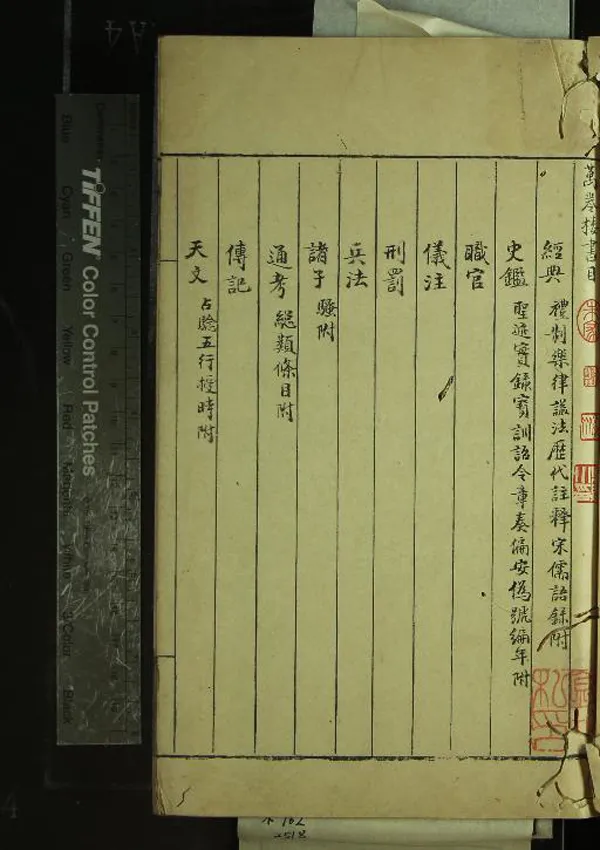 萬卷樓書目
經典 禮制樂律謚法歷代註釋宋儒語錄附
史鑑 聖政實錄寶訓詔令章奏偏安偽號編年附
職官
儀注
刑罰
兵法
諸子 騷附
通考 総類條目附
傳記
天文 占驗五行授時附
TIFFEN Color Control Patches
Blue
Cyan
Green
Yellow
Red
Magenta
White
3/Color
Black